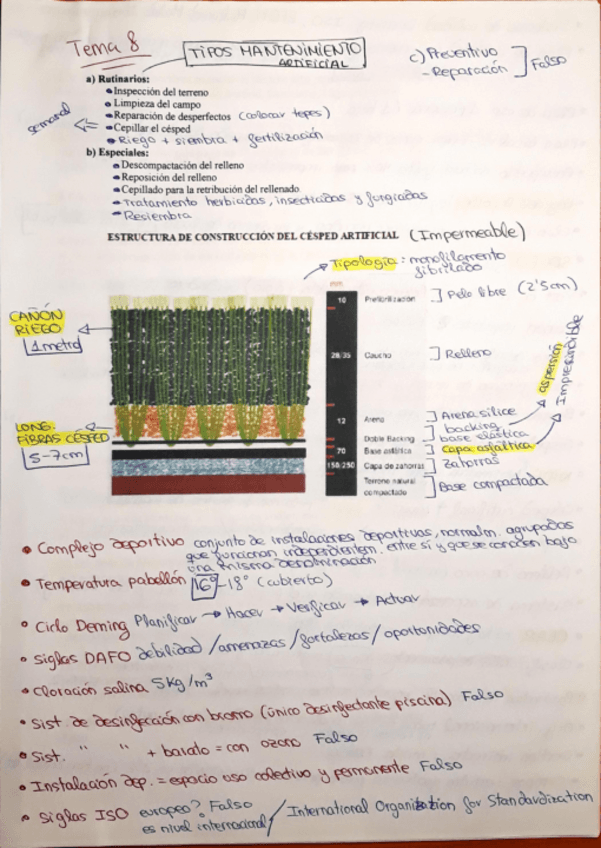 Tema 8
TIPOS MANTENIMIENTO
ARTIFICIAL
c) Preventivo
- Reparación ] Falso
a) Rutinarios:
Inspección del terreno
Limpieza del campo
Reparación de desperfectos (colocar tepes)
semanal
Cepillar el césped
Riego + siembra + fertilización
b) Especiales:
Descompactación del relleno
Reposición del relleno
Cepillado para la retribución del rellenado
Tratamiento herbicidas, insecticidas y fungicidas
Resiembra
ESTRUCTURA DE CONSTRUCCIÓN DEL CÉSPED ARTIFICIAL (Impermeable)
Tipología: monofilamento
fibrilado
mm
10 Prefibrilización ] Pelo libre (2'5cm)
CAÑÓN
RIEGO
1 metro
28/35 Caucho ] Relleno
aspersión
Imprescindible
LONG.
FIBRAS CÉSPED
5-7cm
12 Arena ] Arena sílice
Doble Backing ] backing
base elástica
70 Base asfáltica ] Capa asfáltica
150/250 Capa de zahorras ] Zahorras
Terreno natural
compactado ] Base compactada
Complejo deportivo conjunto de instalaciones deportivas, normalm. agrupados
que funcionan independientem. entre sí y que se conocen bajo
una misma denominación
Temperatura pabellón 16º-18º (cubierto)
Ciclo Deming Planificar → Hacer → Verificar → Actuar
Siglas DAFO debilidad/amenazas/fortalezas/oportunidades
Cloración salina 5Kg/m³
Sist. de desinfección con bromo (único desinfectante piscina) Falso
Sist. " " + barato = con ozono Falso
Instalación dep. = espacio uso colectivo y permanente Falso
Siglas ISO europeo? Falso
es nivel internacional / International Organization for Standardization